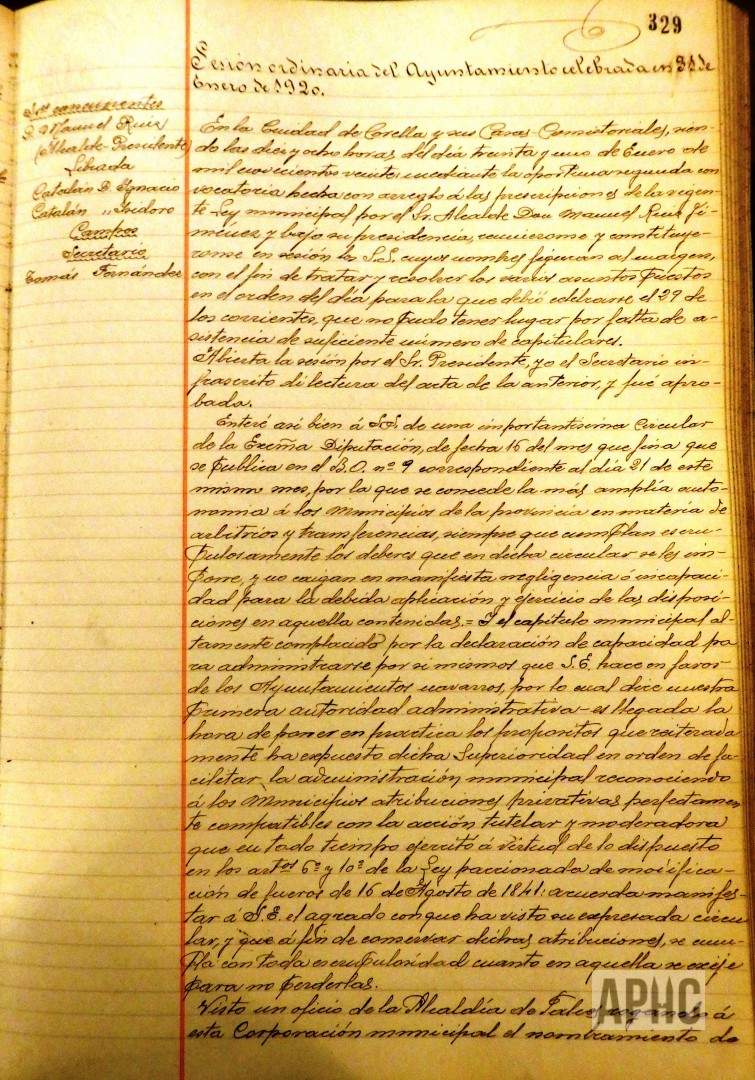 329
Sesión ordinaria del Ayuntamiento celebrada en 31 de
Enero de 1920.
Sres concurrentes
D. Manuel Ruiz
(Alcalde-Presidente)
Librada
Catalán D. Ignacio
Catalán „ Isidoro
Campos
Secretario
Tomás Fernández
En la Ciudad de Corella y sus Casas Consistoriales, sien-
do las diez y ocho horas del día treinta y uno de Enero de
mil novecientos veinte; mediante la oportuna segunda con
vocatoria hecha con arreglo á las prescripciones de la vigen-
te Ley municipal por el Sr. Alcalde Don Manuel Ruiz Ji-
ménez y bajo su presidencia, reunieronse y constituye-
ronse en sesión los S.S. cuyos nombres figuran al margen,
con el fin de tratar y resolver los varios asuntos puestos
en el orden del día para la que debió celebrarse el 29 de
los corrientes, que no pudo tener lugar por falta de a-
sistencia de suficiente número de capitulares.
Abierta la sesión por el Sr. Presidente, yo el Secretario in-
frascrito di lectura del acta de la anterior, y fué apro-
bada.
Enteré asi bien á S.S. de una importantisima Circular
de la Excma Diputación, de fecha 16 del mes que fina que
se publica en el B.O. nº 9 correspondiente al dia 21 de este
mismo mes, por la que se concede la más amplia auto-
nomia á los Municipios de la provincia en materia de
arbitrios y transferencias, siempre que cumplan escru-
pulosamente los deberes que en dicha circular se les im-
pone, y no caigan en manifiesta negligencia ó incapaci-
dad para la debida aplicación y ejercicio de las disposi-
ciones en aquella contenidas. = Y el capitulo municipal al-
tamente complacido por la declaración de capacidad pa
ra administrarse por si mismos que S.E. hace en favor
de los Ayuntamientos navarros, por lo cual dice nuestra
primera autoridad administrativa - es llegada la
hora de poner en practica los propositos que reiterada
mente ha expuesto dicha Superioridad en orden de fa-
cilitar la administración municipal reconociendo
á los Municipios atribuciones privativas perfectamen
te compatibles con la acción tutelar y moderadora
que en todo tiempo ejercitó á virtud de lo dispuesto
en los artos 6º y 10º de la Ley paccionada de modifica-
ción de fueros de 16 de Agosto de 1841: acuerda manifes-
tar á S.E. el agrado con que ha visto su expresada circu
lar, y que á fin de conservar dichas atribuciones, se cum-
pla con toda escrupulosidad cuanto en aquella se exije
para no perderlas.
Visto un oficio de la Alcaldía de rogando á
esta Corporación municipal el nombramiento de
APHC